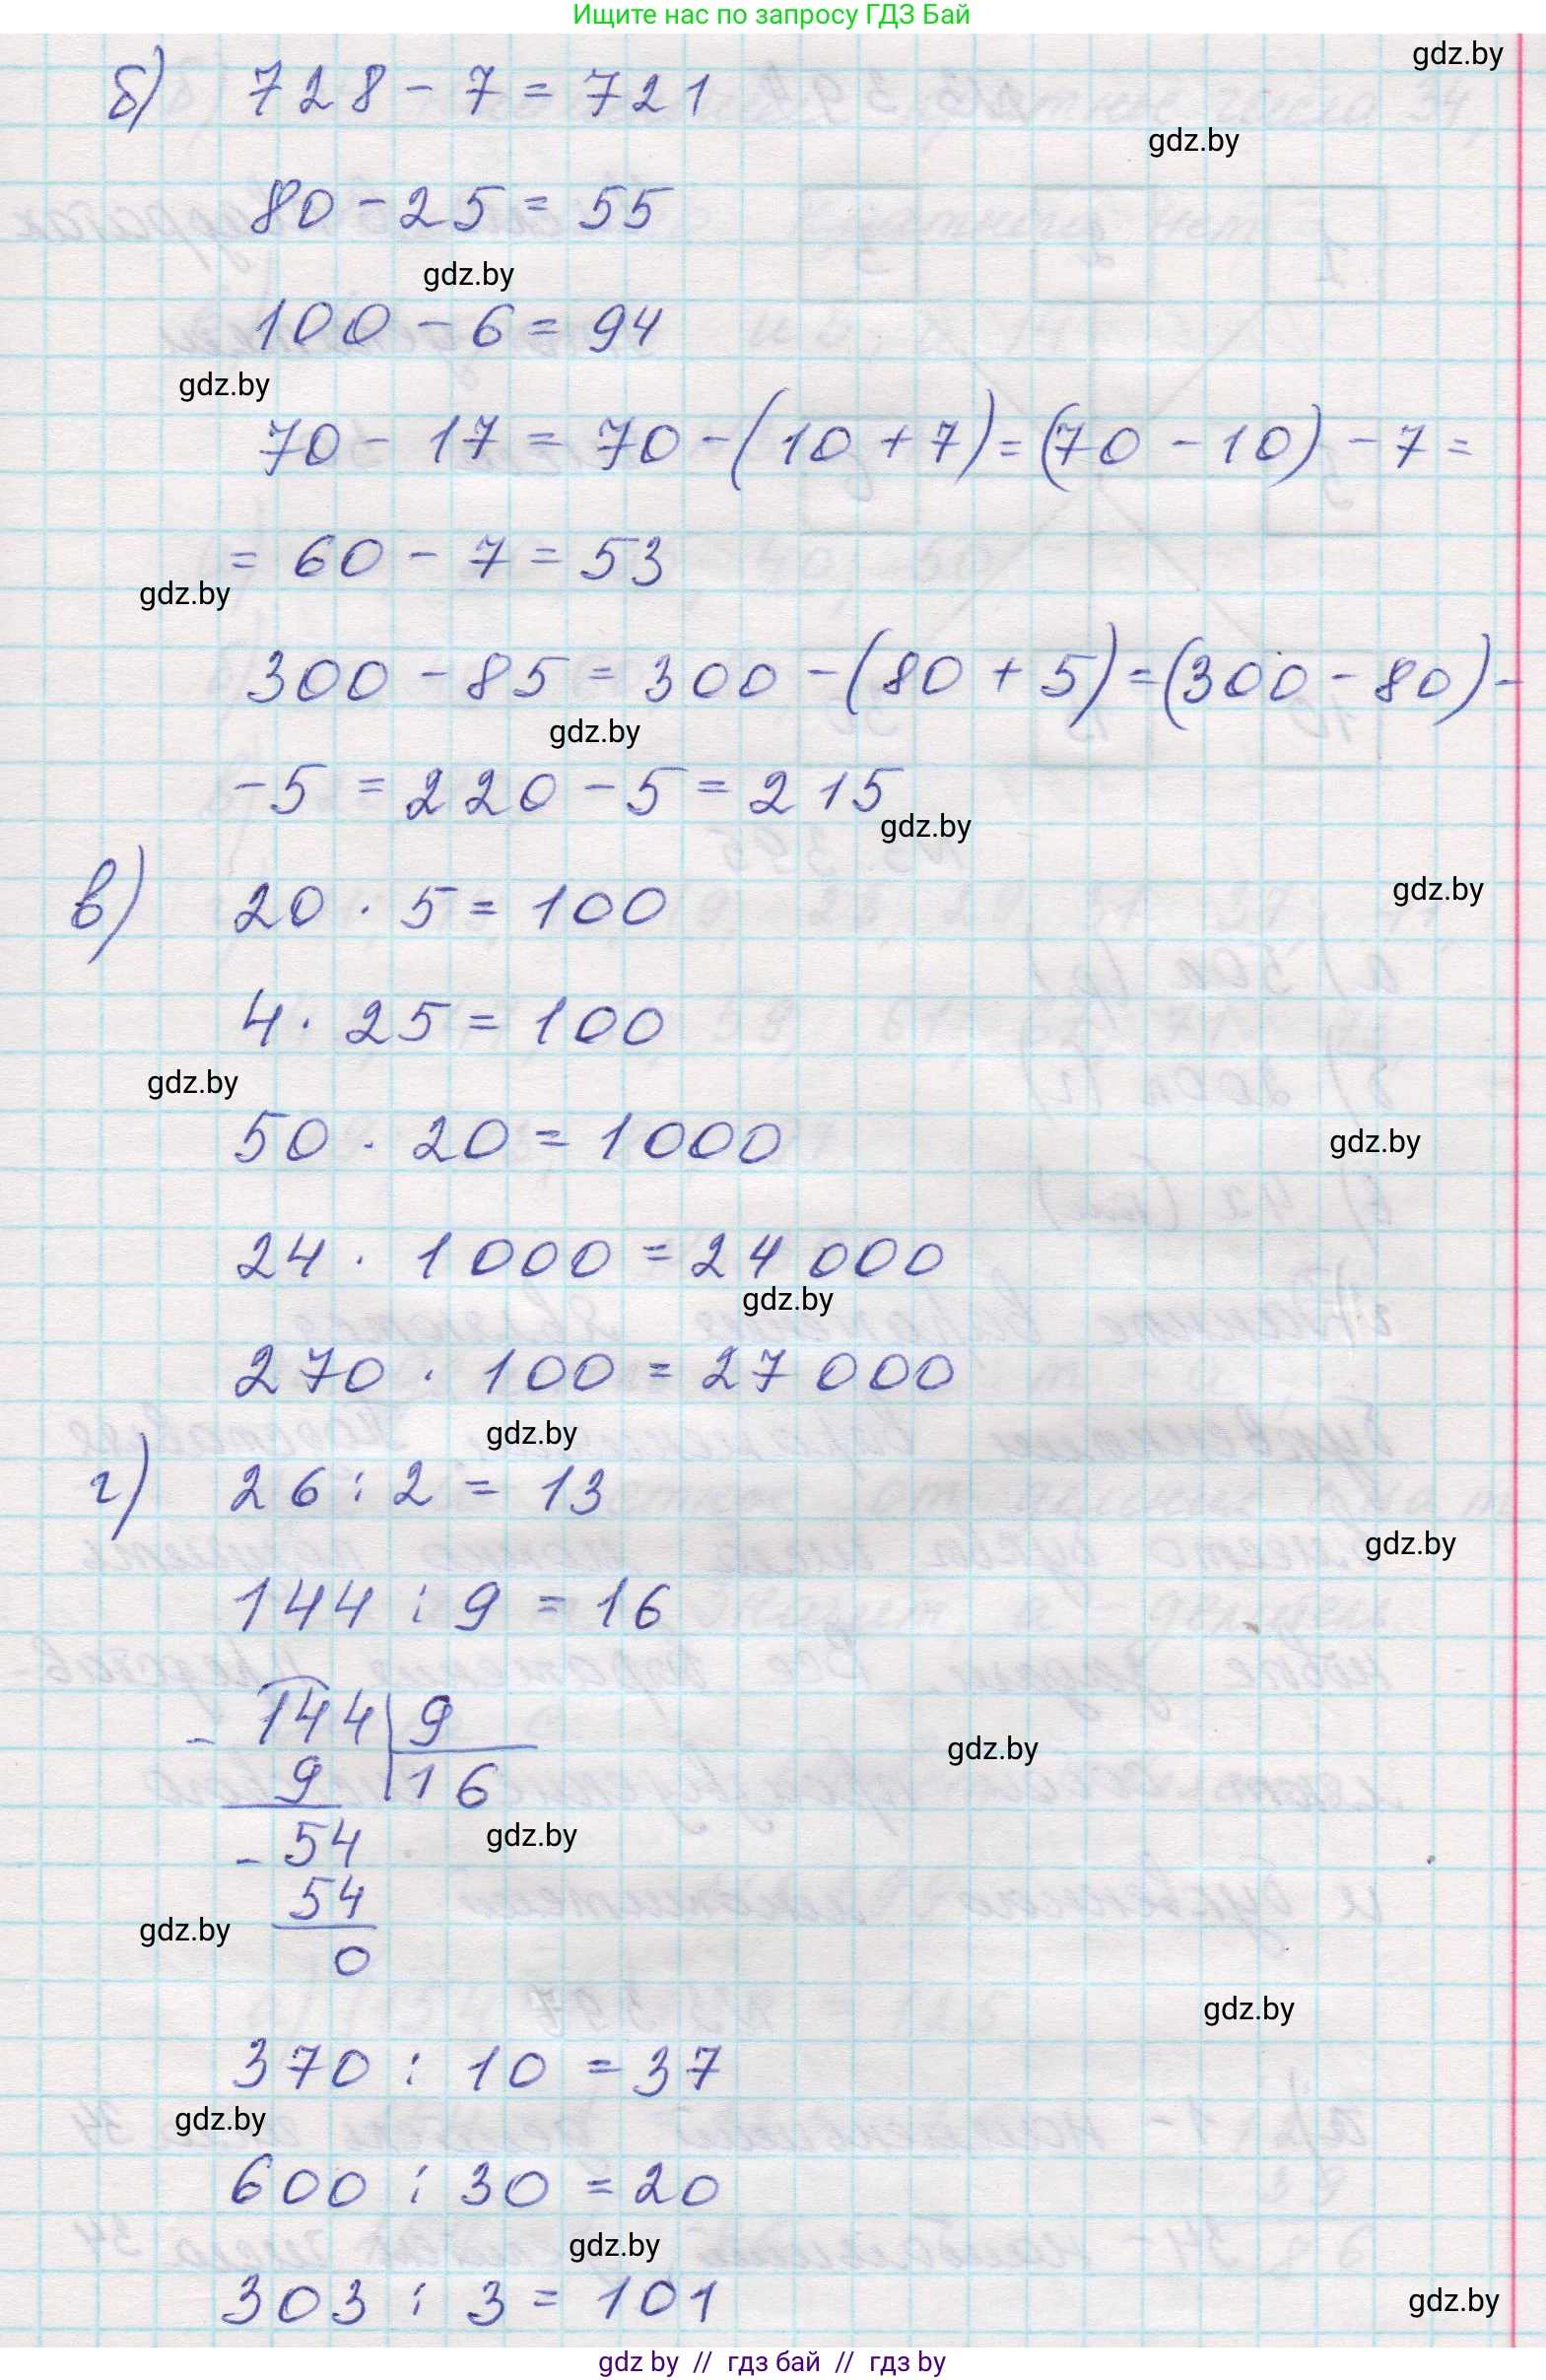 Ищите нас по запросу ГДЗ Бай
gdz.by
б) 728 - 7 = 721
gdz.by
80 - 25 = 55
gdz.by
100 - 6 = 94
gdz.by
70 - 17 = 70 - (10 + 7) = (70 - 10) - 7 =
= 60 - 7 = 53
gdz.by
300 - 85 = 300 - (80 + 5) = (300 - 80) -
gdz.by
- 5 = 220 - 5 = 215
gdz.by
gdz.by
в) 20 · 5 = 100
4 · 25 = 100
gdz.by
50 · 20 = 1000
gdz.by
24 · 1000 = 24 000
gdz.by
270 · 100 = 27 000
gdz.by
г) 26 : 2 = 13
gdz.by
144 : 9 = 16
- 144 | 9
gdz.by
9 | 16
gdz.by
- 54
54
gdz.by
0
gdz.by
370 : 10 = 37
gdz.by
600 : 30 = 20
gdz.by
303 : 3 = 101
gdz.by
gdz by // гдз бай // гдз by